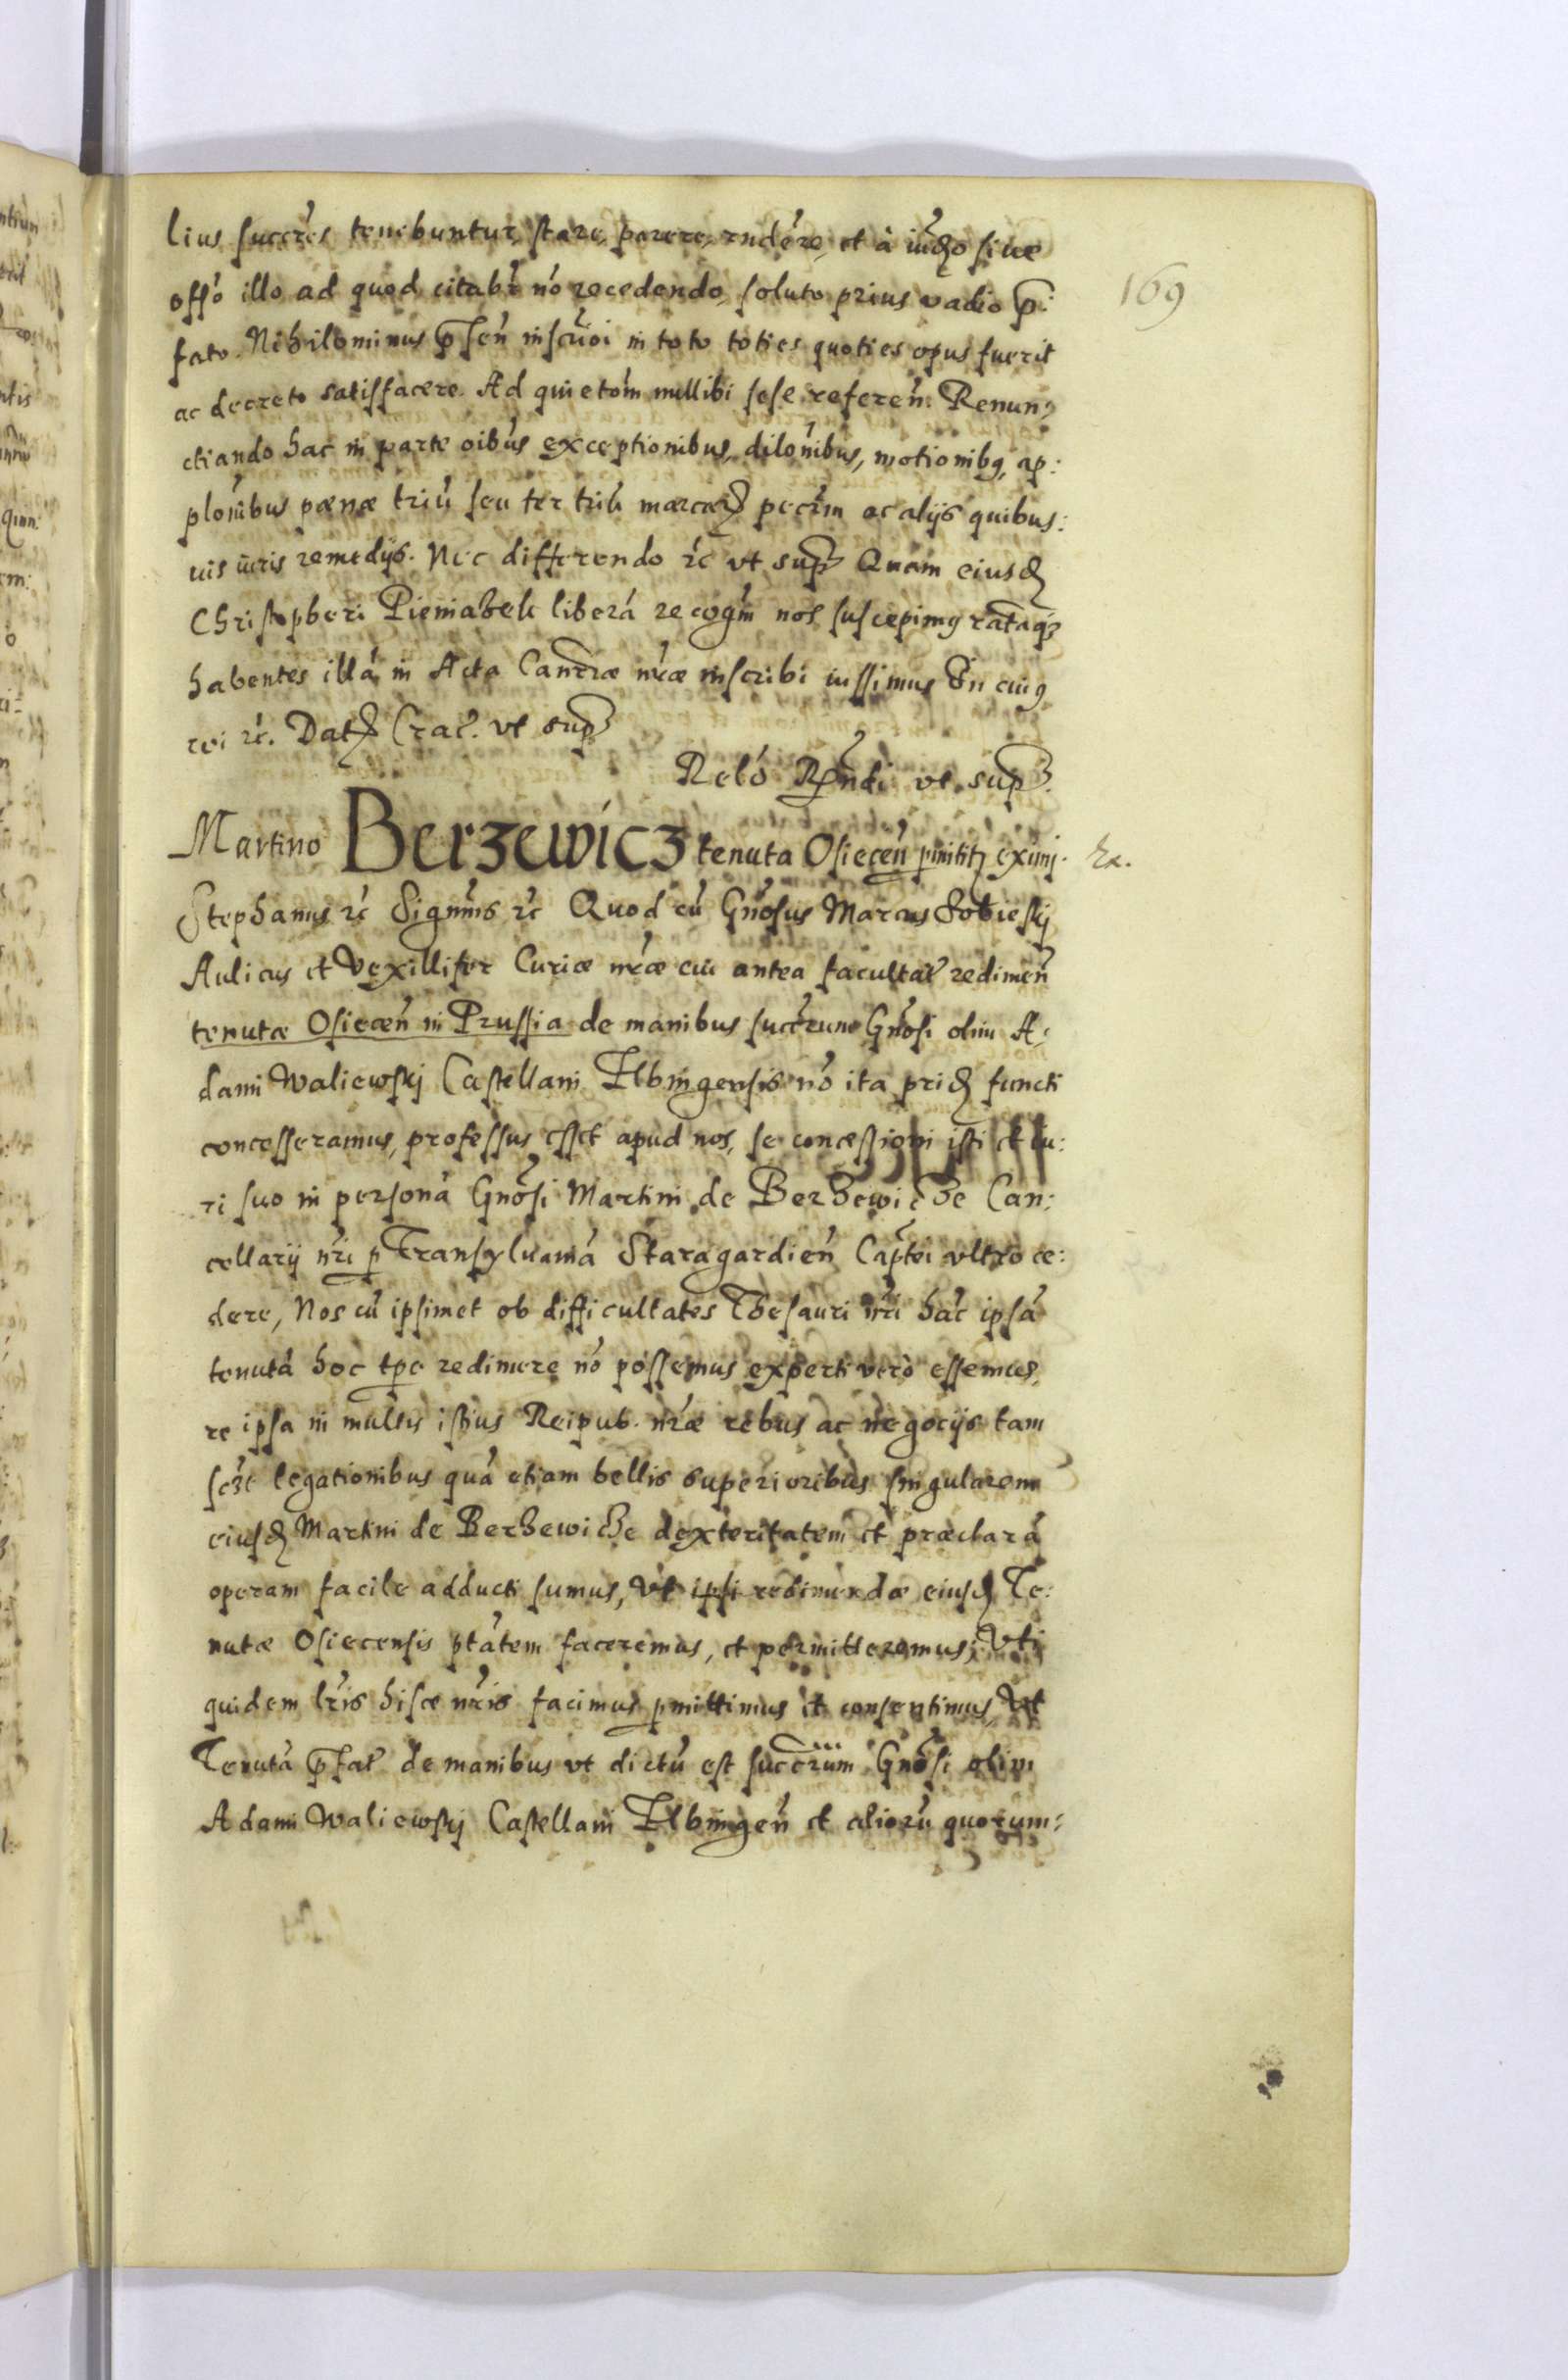 lius succres tenebuntur, stare, parere, rndére, et à iud͠o siue
offó illo ad quod citabr nó recedendo, soluto prius vadio p:
fato. Nihilominus p̃sen inscrōi in toto toties quoties opus fuerit
ac decreto satisfacere. Ad quietóm nullibi sese referen. Renun,
ctiando hac in parte oibus exceptionibus, dilonibus, motionibq, ap:
plonibus pænæ triu seu ter trib marcarum pecrm ac alijs quibus:
uis iuris remedijs. Nec differendo rc vt sup Quam eiusd
Christopheri Pieniazek liberá recogm nos suscepimq ratāqz
habentes illá in Acta Cancræ nræ inscribi iussimus In cuiq
rei rc. Dat Crac. vt sup
Reló Rndi vt sup.
169
Martino Berzewicz tenuta Osiecen pmittit eximj.
Stephanus rc Signms rc Quod cu Gnosus Marcus Sobieskj
Aulicus et Vexillifer Curiæ nræ cui antea facultat redimen
tenutæ Osiecen in Prussia de manibus succrum Gnosi olim A:
dami Waliewskj Castellani Elbingensis nó ita prid functi
concesseramus, professus esset apud nos, se concessioni isti et iu:
ri suo in personá Gnosi Martini de Berzewicze Can:
cellarij nri p Transyluaniá Staragardien Captei vltro ce:
dere, Nos cu ipsimet ob difficultates Thesauri nri hac ipsá
tenutá hoc tpe redimere nó possemus experti verò essemus,
re ipsa in multis istius Reipub. nræ rebus ac negocijs tam
sczt legationibus quá etiam bellis superioribus singularem
eiusd Martini de Berzewicze dexteritatem et præclará
operam facile adducti sumus, vt ipsi redimendæ eiusd Te:
nutæ Osiecensis ptátem faceremus, et permitteremus, Vti
quidem lris hisce nris facimus pmittimus et consentimus, Vt
Tenutá p̃fat de manibus vt dictu est succrum Gnosi olim
Adami Waliewskj Castellani Elbingen et alioru quorum: